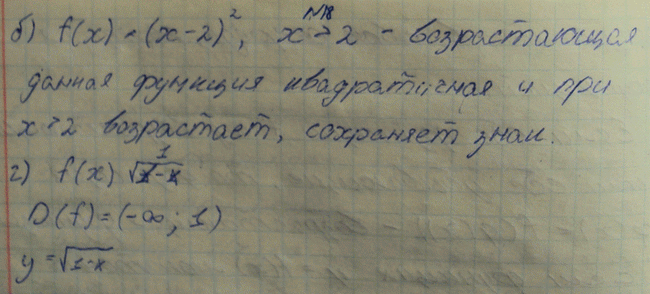 N18
б) f(x) = (x-2)², x > 2 - возрастающая
данная функция квадратичная и при
x > 2 возрастает, сохраняет знак.
г) f(x) 1/√1-x
D(f) = (-∞; 1)
y = √1-x